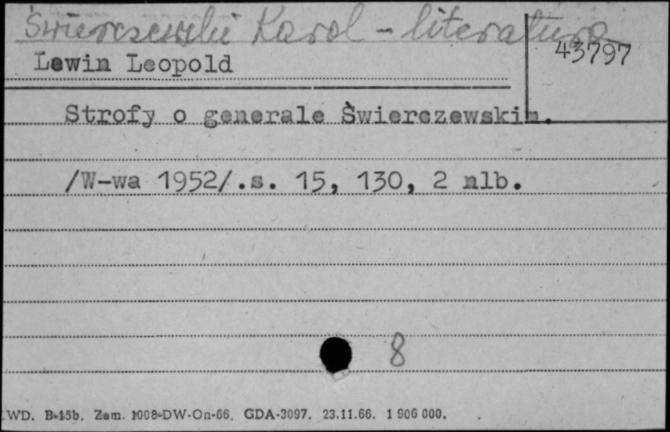 Świerczewski Karol - literatura
43797
Lewin Leopold
Strofy o generale Świerczewskim.
/W-wa 1952/.s. 15, 130, 2 nlb.
8
WD. B-15b. Zam. 1008-DW-On-66. GDA-3097. 23.11.66. 1 906 000.